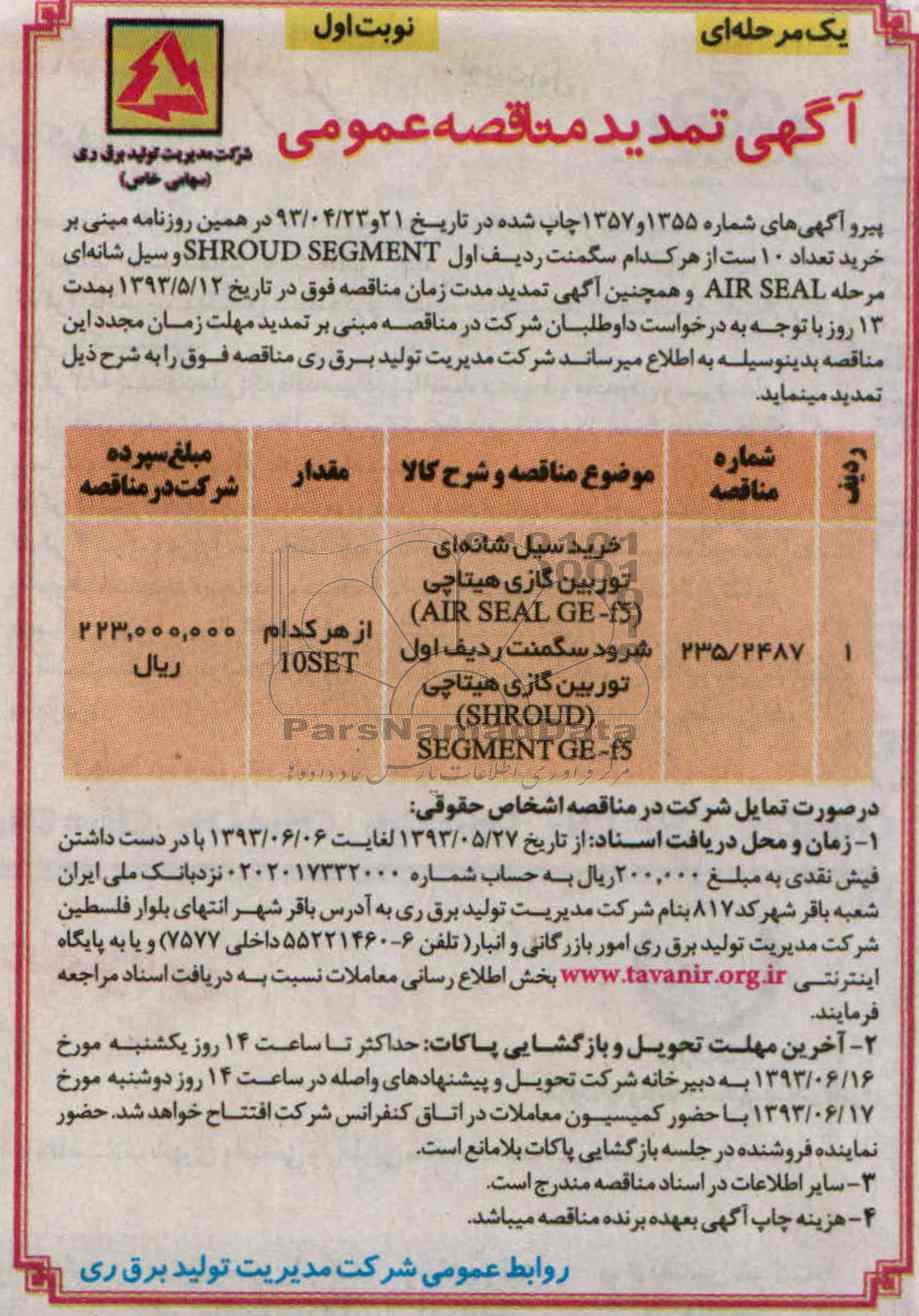 یک مرحله‌ای
نوبت اول
آگهی تمدید مناقصه عمومی
شرکت مدیریت تولید برق ری
(سهامی خاص)
پیرو آگهی‌های شماره ۱۳۵۵و۱۳۵۷چاپ شده در تاریخ ۲۱و۹۳/۰۴/۲۳ در همین روزنامه مبنی بر
خرید تعداد ۱۰ ست از هر کدام سگمنت ردیف اول SHROUD SEGMENT و سیل شانه‌ای
مرحله AIR SEAL و همچنین آگهی تمدید مدت زمان مناقصه فوق در تاریخ ۱۳۹۳/۵/۱۲ بمدت
۱۳ روز با توجه به درخواست داوطلبان شرکت در مناقصه مبنی بر تمدید مهلت زمان مجدد این
مناقصه بدینوسیله به اطلاع میرساند شرکت مدیریت تولید برق ری مناقصه فوق را به شرح ذیل
تمدید مینماید.
ردیف
شماره مناقصه
موضوع مناقصه و شرح کالا
مقدار
مبلغ سپرده شرکت در مناقصه
۱
۲۳۵/۲۴۸۷
خرید سیل شانه‌ای
توربین گازی هیتاچی
(AIR SEAL GE -f5)
شرود سگمنت ردیف اول
توربین گازی هیتاچی
(SHROUD)
SEGMENT GE -f5
از هر کدام
10SET
۲۲۳,۰۰۰,۰۰۰
ریال
ParsNamadData
مرکز فرآوری اطلاعات پارس نماد داده‌ها
در صورت تمایل شرکت در مناقصه اشخاص حقوقی:
۱- زمان و محل دریافت اسناد: از تاریخ ۱۳۹۳/۰۵/۲۷ لغایت ۱۳۹۳/۰۶/۰۶ با در دست داشتن
فیش نقدی به مبلغ ۲۰۰,۰۰۰ریال به حساب شماره ۰۲۰۲۰۱۷۳۳۲۰۰۰ نزدبانک ملی ایران
شعبه باقر شهر کد۸۱۷ بنام شرکت مدیریت تولید برق ری به آدرس باقر شهر انتهای بلوار فلسطین
شرکت مدیریت تولید برق ری امور بازرگانی و انبار( تلفن ۶-۵۵۲۲۱۴۶۰ داخلی ۷۵۷۷) و یا به پایگاه
اینترنتی www.tavanir.org.ir بخش اطلاع رسانی معاملات نسبت به دریافت اسناد مراجعه
فرمایند.
۲- آخرین مهلت تحویل و بازگشایی پاکات: حداکثر تا ساعت ۱۴ روز یکشنبه مورخ
۱۳۹۳/۰۶/۱۶ به دبیرخانه شرکت تحویل و پیشنهادهای واصله در ساعت ۱۴ روز دوشنبه مورخ
۱۳۹۳/۰۶/۱۷ با حضور کمیسیون معاملات در اتاق کنفرانس شرکت افتتاح خواهد شد. حضور
نماینده فروشنده در جلسه بازگشایی پاکات بلامانع است.
۳- سایر اطلاعات در اسناد مناقصه مندرج است.
۴- هزینه چاپ آگهی بعهده برنده مناقصه میباشد.
روابط عمومی شرکت مدیریت تولید برق ری